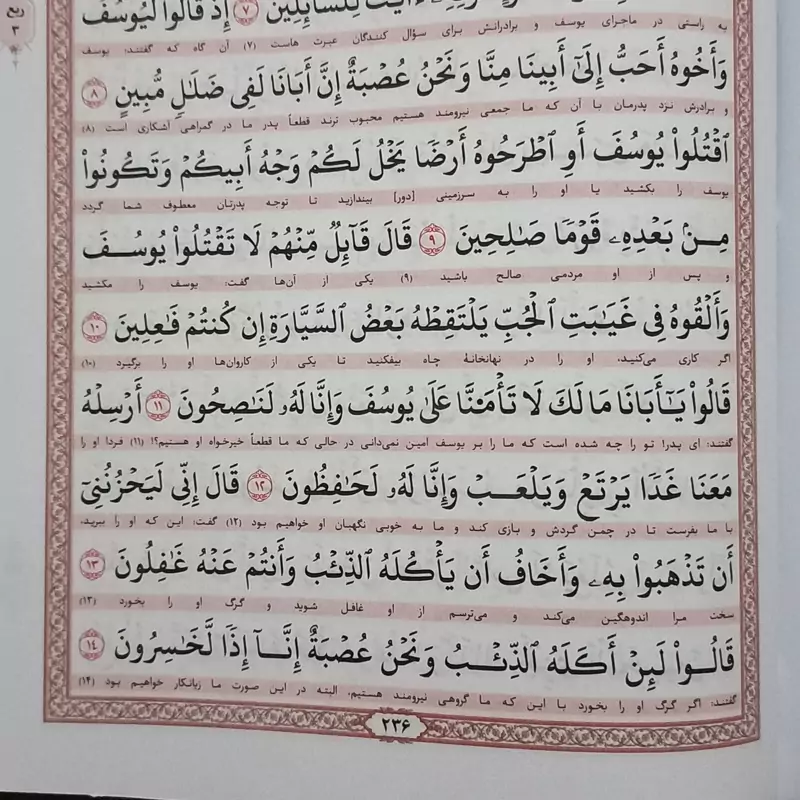 ءَايَٰتٌ لِّلسَّآئِلِينَ ﴿٧﴾ إِذْ قَالُوا۟ لَيُوسُفُ
به راستی در ماجرای یوسف و برادرانش برای سؤال کنندگان عبرت هاست (۷) آن گاه که گفتند: یوسف
وَأَخُوهُ أَحَبُّ إِلَىٰٓ أَبِينَا مِنَّا وَنَحْنُ عُصْبَةٌ إِنَّ أَبَانَا لَفِى ضَلَٰلٍ مُّبِينٍ ﴿٨﴾
و برادرش نزد پدرمان با آن که ما جمعی نیرومند هستیم محبوب ترند قطعاً پدر ما در گمراهی آشکاری است (۸)
ٱقْتُلُوا۟ يُوسُفَ أَوِ ٱطْرَحُوهُ أَرْضًا يَخْلُ لَكُمْ وَجْهُ أَبِيكُمْ وَتَكُونُوا۟
یوسف را بکشید یا او را به سرزمینی [دور] بیندازید تا توجه پدرتان معطوف شما گردد
مِنۢ بَعْدِهِۦ قَوْمًا صَٰلِحِينَ ﴿٩﴾ قَالَ قَآئِلٌ مِّنْهُمْ لَا تَقْتُلُوا۟ يُوسُفَ
و پس از او مردمی صالح باشید (۹) یکی از آن‌ها گفت: یوسف را مکشید
وَأَلْقُوهُ فِى غَيَٰبَتِ ٱلْجُبِّ يَلْتَقِطْهُ بَعْضُ ٱلسَّيَّارَةِ إِن كُنتُمْ فَٰعِلِينَ ﴿١٠﴾
اگر کاری می‌کنید، او را در نهانخانهٔ چاه بیفکنید تا یکی از کاروان‌ها او را برگیرد (۱۰)
قَالُوا۟ يَٰٓأَبَانَا مَا لَكَ لَا تَأْمَ۫نَّا عَلَىٰ يُوسُفَ وَإِنَّا لَهُۥ لَنَٰصِحُونَ ﴿١١﴾ أَرْسِلْهُ
گفتند: ای پدر! تو را چه شده است که ما را بر یوسف امین نمی‌دانی در حالی که ما قطعاً خیرخواه او هستیم؟! (۱۱) فردا او را
مَعَنَا غَدًا يَرْتَعْ وَيَلْعَبْ وَإِنَّا لَهُۥ لَحَٰفِظُونَ ﴿١٢﴾ قَالَ إِنِّى لَيَحْزُنُنِىٓ
با ما بفرست تا در چمن گردش و بازی کند و ما به خوبی نگهبان او خواهیم بود (۱۲) گفت: این که او را ببرید،
أَن تَذْهَبُوا۟ بِهِۦ وَأَخَافُ أَن يَأْكُلَهُ ٱلذِّئْبُ وَأَنتُمْ عَنْهُ غَٰفِلُونَ ﴿١٣﴾
سخت مرا اندوهگین می‌کند و می‌ترسم از او غافل شوید و گرگ او را بخورد (۱۳)
قَالُوا۟ لَئِنْ أَكَلَهُ ٱلذِّئْبُ وَنَحْنُ عُصْبَةٌ إِنَّآ إِذًا لَّخَٰسِرُونَ ﴿١٤﴾
گفتند: اگر گرگ او را بخورد با این که ما گروهی نیرومند هستیم، البته در این صورت ما زیانکار خواهیم بود (۱۴)
۲۳۶
ربع
۳